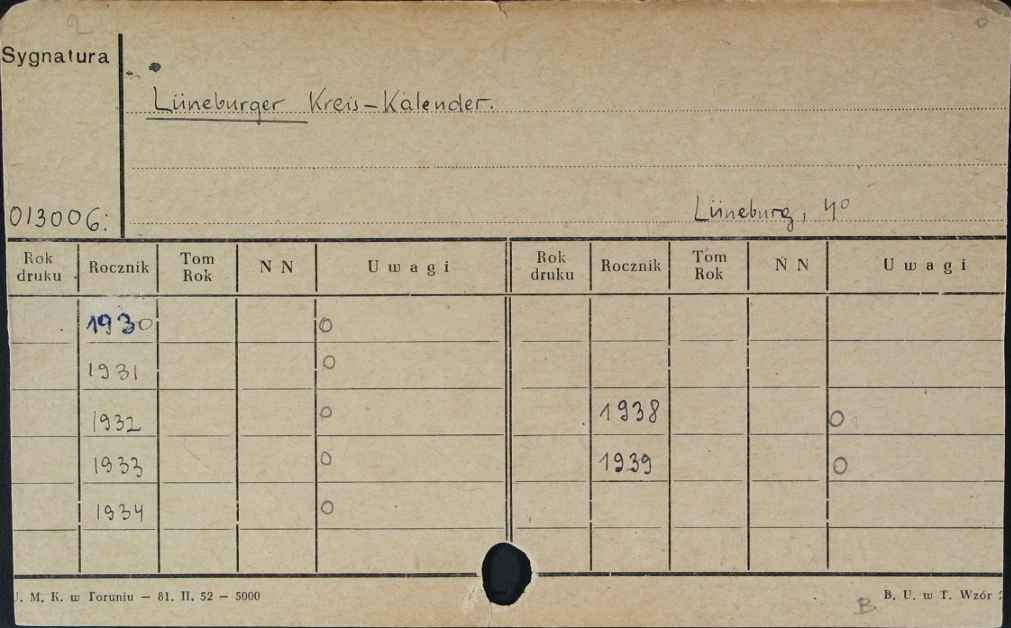 2
Sygnatura
Lüneburger Kreis-Kalender.
013006:
Lüneburg, 4°
Rok druku Rocznik Tom Rok N N Uwagi Rok druku Rocznik Tom Rok N N Uwagi
1930 0
1931 0
1932 0 1938 0
1933 0 1939 0
1934 0
U. M. K. w Toruniu – 81. II. 52 – 5000
B
B. U. w T. Wzór